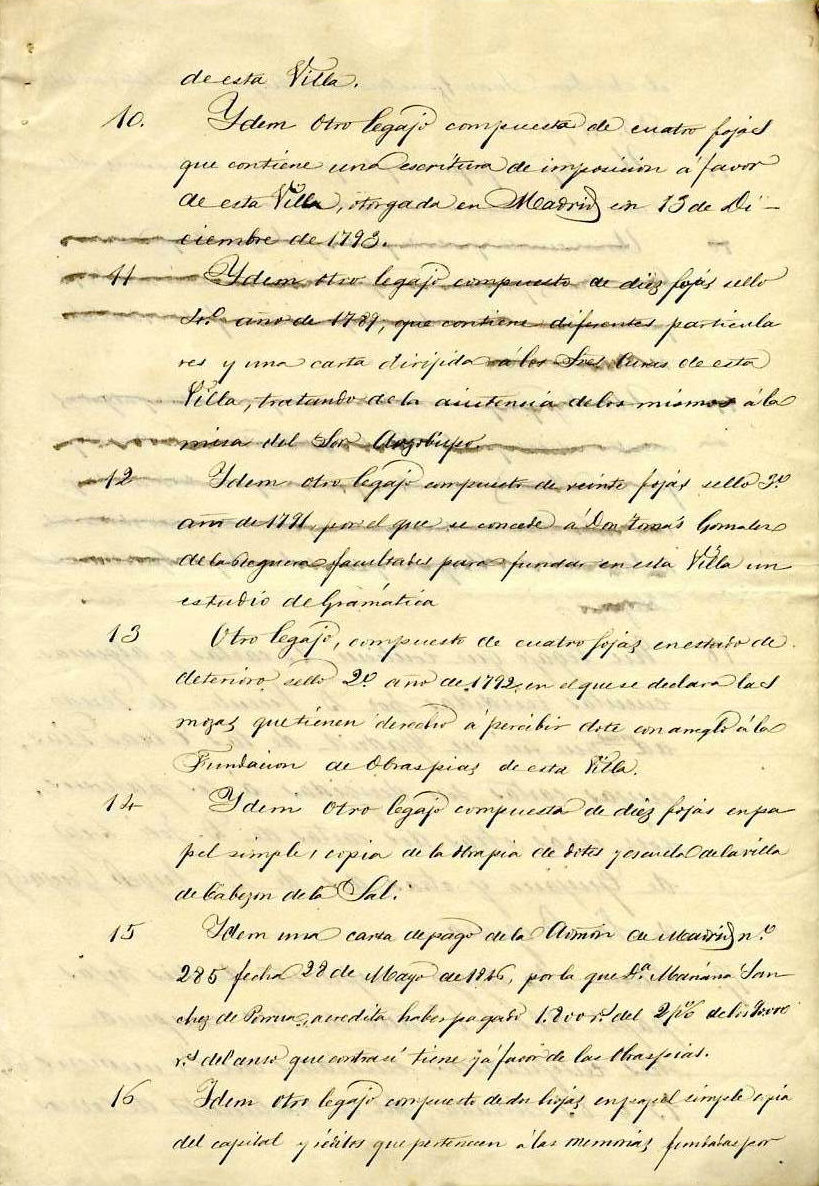 de esta Villa.
10. Ydem otro legajo compuesta de cuatro fojas
que contiene una escritura de imposición á favor
de esta Villa, otorgada en Madrid en 13 de Di-
ciembre de 1793.
11 Ydem otro legajo compuesto de diez fojas sello
4º año de 1789, que contiene diferentes particula
res y una carta dirijida á los Sres Curas de esta
Villa, tratando de la asistencia de los mismos á la
misa del Sor Arzobispo
12 Ydem otro legajo compuesto de veinte fojas sello 3º
año de 1791 por el que se concede á Don Tomás Gomalez
de la Reguera facultades para fundar en esta Villa un
estudio de Gramática
13 Otro legajo, compuesto de cuatro fojas en estado de
deterioro sello 2º año de 1792, en el que se declara las
mozas que tienen derecho á percibir dote con arreglo á la
Fundacion de Obraspias de esta Villa.
14 Ydem otro legajo compuesta de diez fojas en pa
pel simple, copia de la Obrapia de dotes y escuela de la villa
de Cabezon de la Sal.
15 Ydem una carta de pago de la Admón de Madrid n.º
285 fecha 28 de Mayo de 1846, por la que D.ª Mariana San-
chez de Porrua, acredita haber pagado 1.800 r.s del 2 p% de los
r.s del censo que contra sí tiene y á favor de las Obraspias.
16 Ydem otro legajo compuesto de dos hojas en papel simple copia
del capital y réditos que pertenecen á las memorias fundadas por